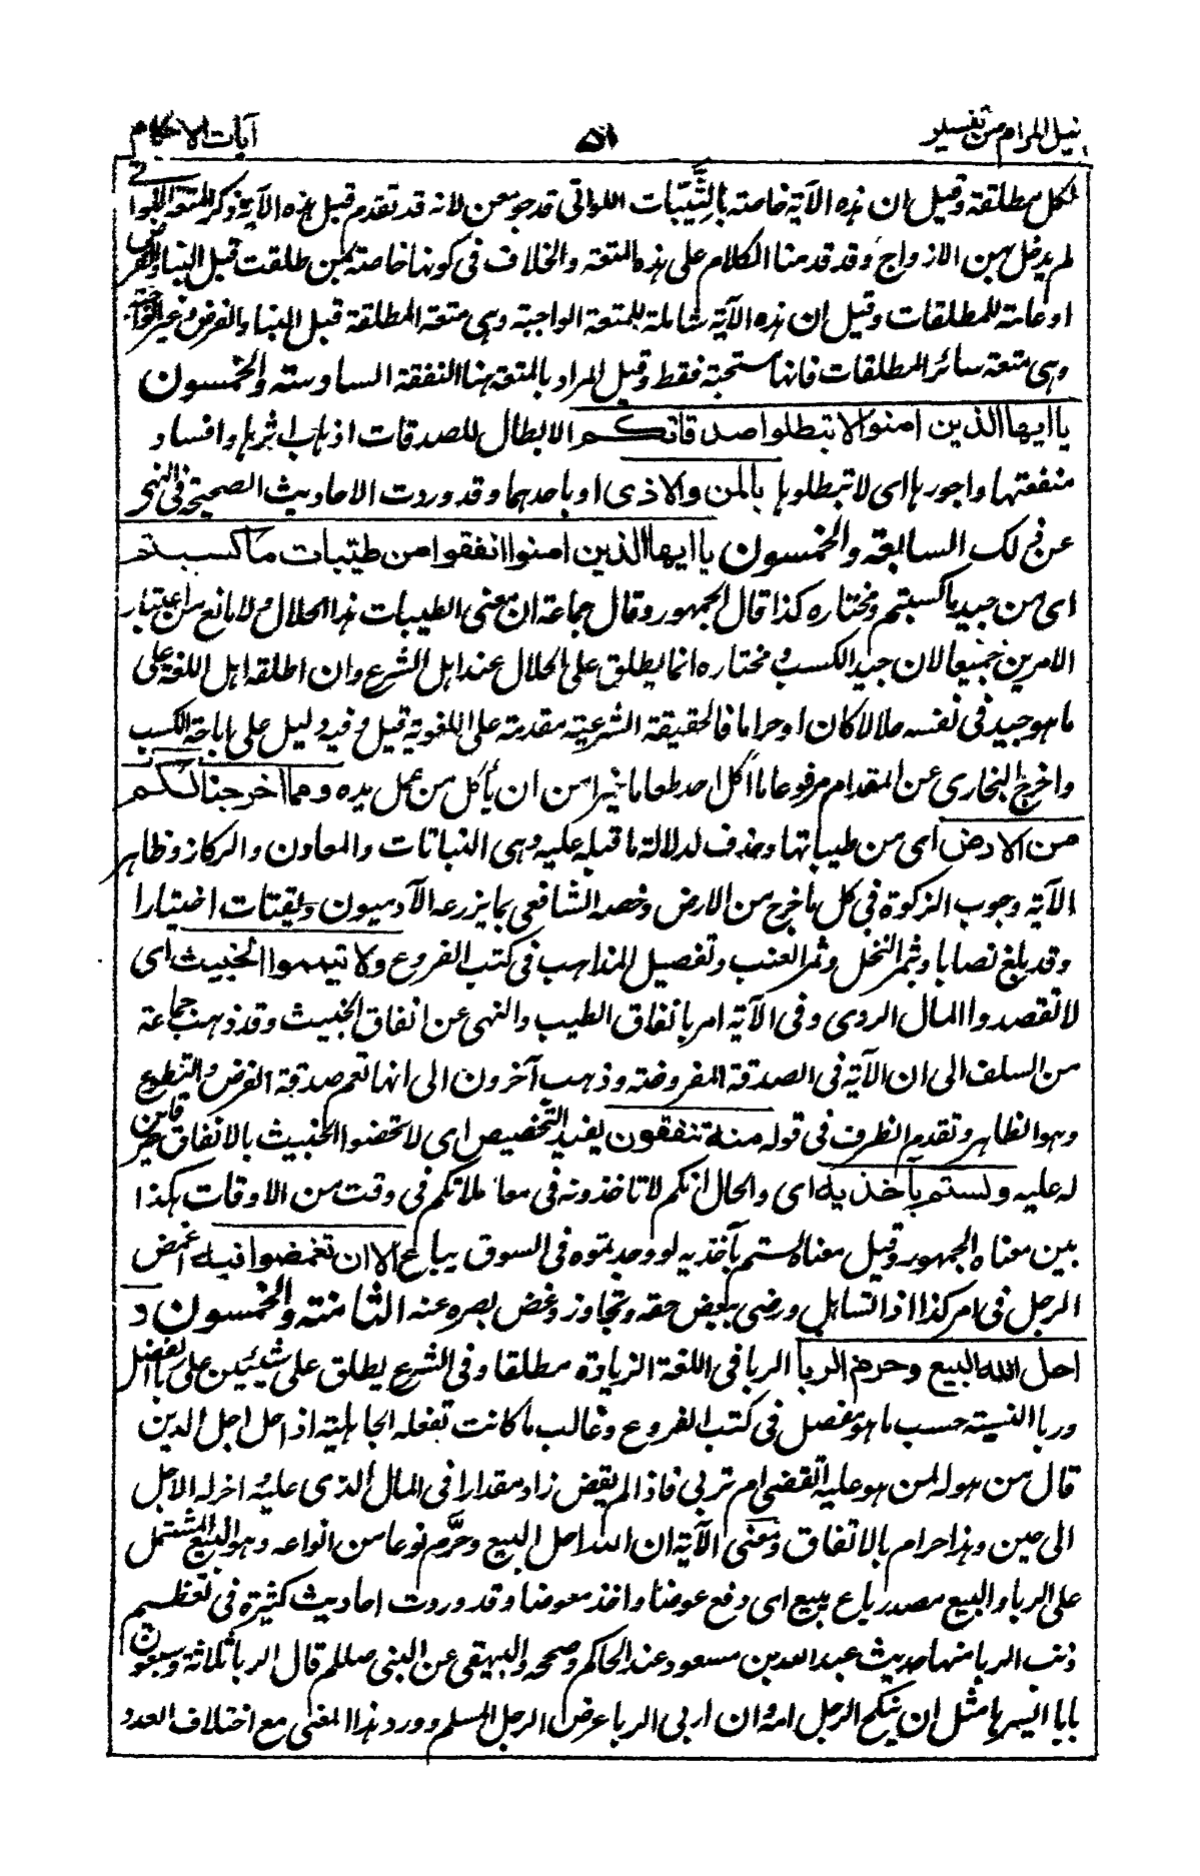 نيل المرام من تفسير ٥١ آيات الاحكام
لكل مطلقة وقيل ان هذه الآية خاصة بالثَّيّبات اللواتي قد جومعن لانه قد تقدم قبل هذه الآية ذكر المتعة للواتي
لم يدخل بهن الازواج وقد قدمنا الكلام على هذه المتعة والخلاف في كونها خاصة بمن طلقت قبل البناء والفرض
او عامة للمطلقات وقيل ان هذه الآية شاملة للمتعة الواجبة وهي متعة المطلقة قبل البناء والفرض وغير الواجبة
وهي متعة سائر المطلقات فانها مستحبة فقط وقيل المراد بالمتعة هنا النفقة السادسة والخمسون
يا ايها الذين امنوا لا تبطلوا صدقاتكم الابطال للصدقات اذهاب اثرها وافساد
منفعتها واجورها اى لا تبطلوها بالمن والاذى او باحدهما وقد وردت الاحاديث الصحيحة في النهى
عن ذلك السابعة والخمسون يا ايها الذين امنوا انفقوا من طيبات ما كسبتم
اى من جيد ما كسبتم ومختاره كذا قال الجمهور وقال جماعة ان معنى الطيبات هذا الحلال ولا مانع من اعتبار
الامرين جميعا لان جيد الكسب ومختاره انما يطلق على الحلال عند اهل الشرع وان اطلقه اهل اللغة على
ما هو جيد في نفسه حلالا كان او حراما فالحقيقة الشرعية مقدمة على اللغوية قيل وفيه دليل على اباحة الكسب
واخرج البخارى عن المقدام مرفوعا ما اكل احد طعاما خيرا من ان يأكل من عمل يده ومما اخرجنا لكم
من الارض اى من طيباتها وحذف لدلالة ما قبله عليه وهي النباتات والمعادن والركاز وظاهر
الآية وجوب الزكوة في كل ما خرج من الارض وخصه الشافعى بما يزرعه الآدميون ويقتات اختيارا
وقد بلغ نصابا وبثمر النخل وثمر العنب وتفصيل المذاهب في كتب الفروع ولا تيمموا الخبيث اى
لا تقصدوا المال الردى وفى الآية امر بانفاق الطيب والنهى عن انفاق الخبيث وقد ذهب جماعة
من السلف الى ان الآية في الصدقة المفروضة وذهب آخرون الى انها تعم صدقة الفرض والتطوع
وهو الظاهر وتقديم الظرف في قوله منه تنفقون يفيد التخصيص اى لا تخصوا الخبيث بالانفاق قاصرين
له عليه ولستم بآخذيه اى والحال انكم لا تاخذونه في معاملاتكم في وقت من الاوقات هكذا
بين معناه الجمهور وقيل معناه لستم بآخذيه لو وجدتموه في السوق يباع الا ان تغمضوا فيه اغمض
الرجل في امر كذا اذا تساهل ورضى ببعض حقه وتجاوز وغض بصره عنه الثامنة والخمسون و
احل الله البيع وحرم الربا الربا في اللغة الزيادة مطلقا وفى الشرع يطلق على شيئين على ربا الفضل
وربا النسيئة حسب ما هو مفصل في كتب الفروع وغالب ما كانت تفعله الجاهلية اذا حل اجل الدين
قال من هو له لمن هو عليه اتقضى ام تربى فاذا لم يقض زاد مقدارا في المال الذى عليه واخر له الاجل
الى حين وهذا حرام بالاتفاق ومعنى الآية ان الله احل البيع وحرَّم نوعا من انواعه وهو البيع المشتمل
على الربا والبيع مصدر باع يبيع اى دفع عوضا واخذ معوضا وقد وردت احاديث كثيرة في تعظيم
ذنب الربا منها حديث عبد الله بن مسعود عند الحاكم وصححه والبيهقى عن النبى صللم قال الربا ثلاثة وسبعون
بابا ايسرها مثل ان ينكح الرجل امه وان اربى الربا عرض الرجل المسلم وورد هذا المعنى مع اختلاف العدد